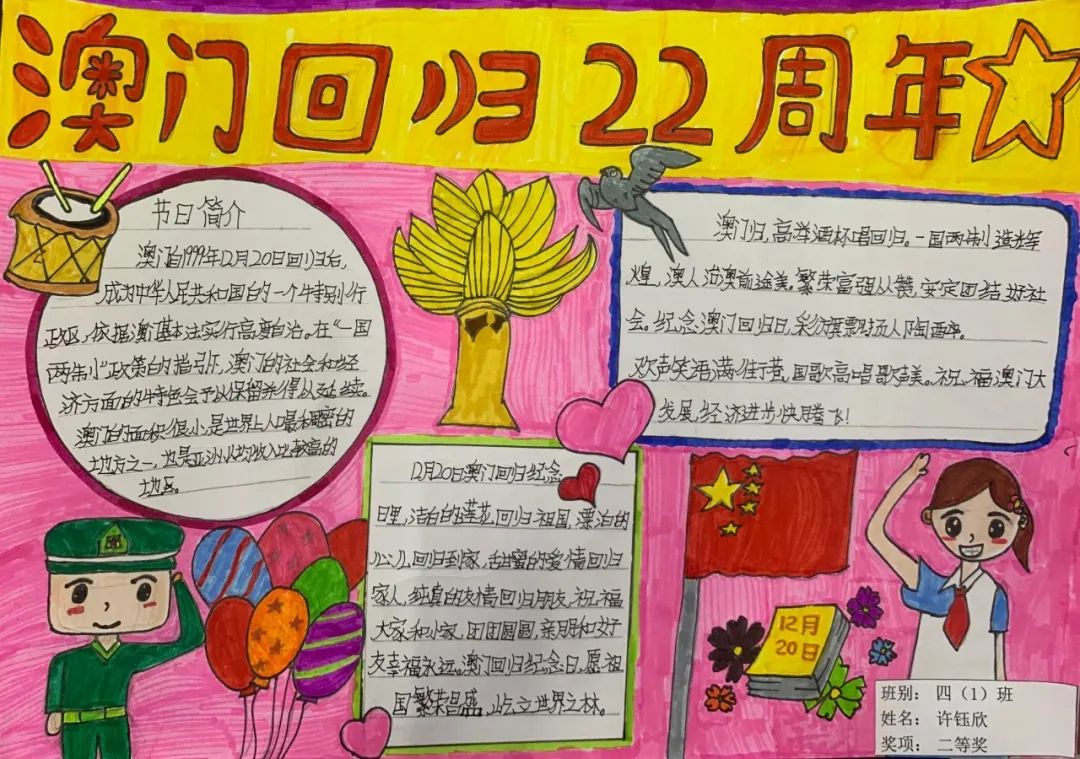 澳门回归22周年
节日简介
澳门自1999年12月20日回归后,
成为中华人民共和国的一个特别行
政区,依据澳门基本法实行高度自治。在“一国
两制”政策的指引下,澳门的社会和经
济方面的特色会予以保留并得以延续。
澳门的面积很小,是世界上人口最稠密的
地方之一,也是亚洲人均收入较高的
地区。
澳门归,高举酒杯唱回归。一国两制造辉
煌,澳人治澳前途美。繁荣富强众赞,安定团结好社
会。纪念澳门回归日,彩旗飘扬人陶醉。
欢声笑语满佳节,国歌高唱歌声美。祝福澳门大
发展,经济进步快腾飞!
12月20日澳门回归纪念
日里,洁白的莲花回归祖国,漂泊的
心儿回归到家,甜蜜的爱情回归
家人,纯真的友情回归朋友,祝福
大家和小家,团团圆圆,亲朋和好
友幸福永远。澳门回归纪念日,愿祖
国繁荣昌盛,屹立世界之林。
12月
20日
班别: 四(1)班
姓名: 许钰欣
奖项: 二等奖